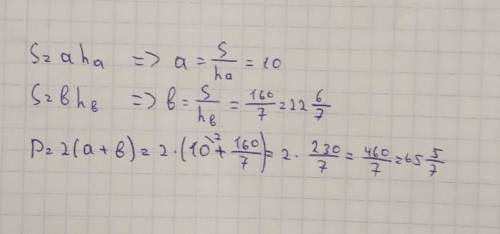 S = a hₐ => a = S/hₐ = 10
S = в hв => в = S/hв = 160/7 = 22 6/7
P = 2(a + в) = 2 · (10\⁷ + 160/7) = 2 · 230/7 = 460/7 = 65 5/7